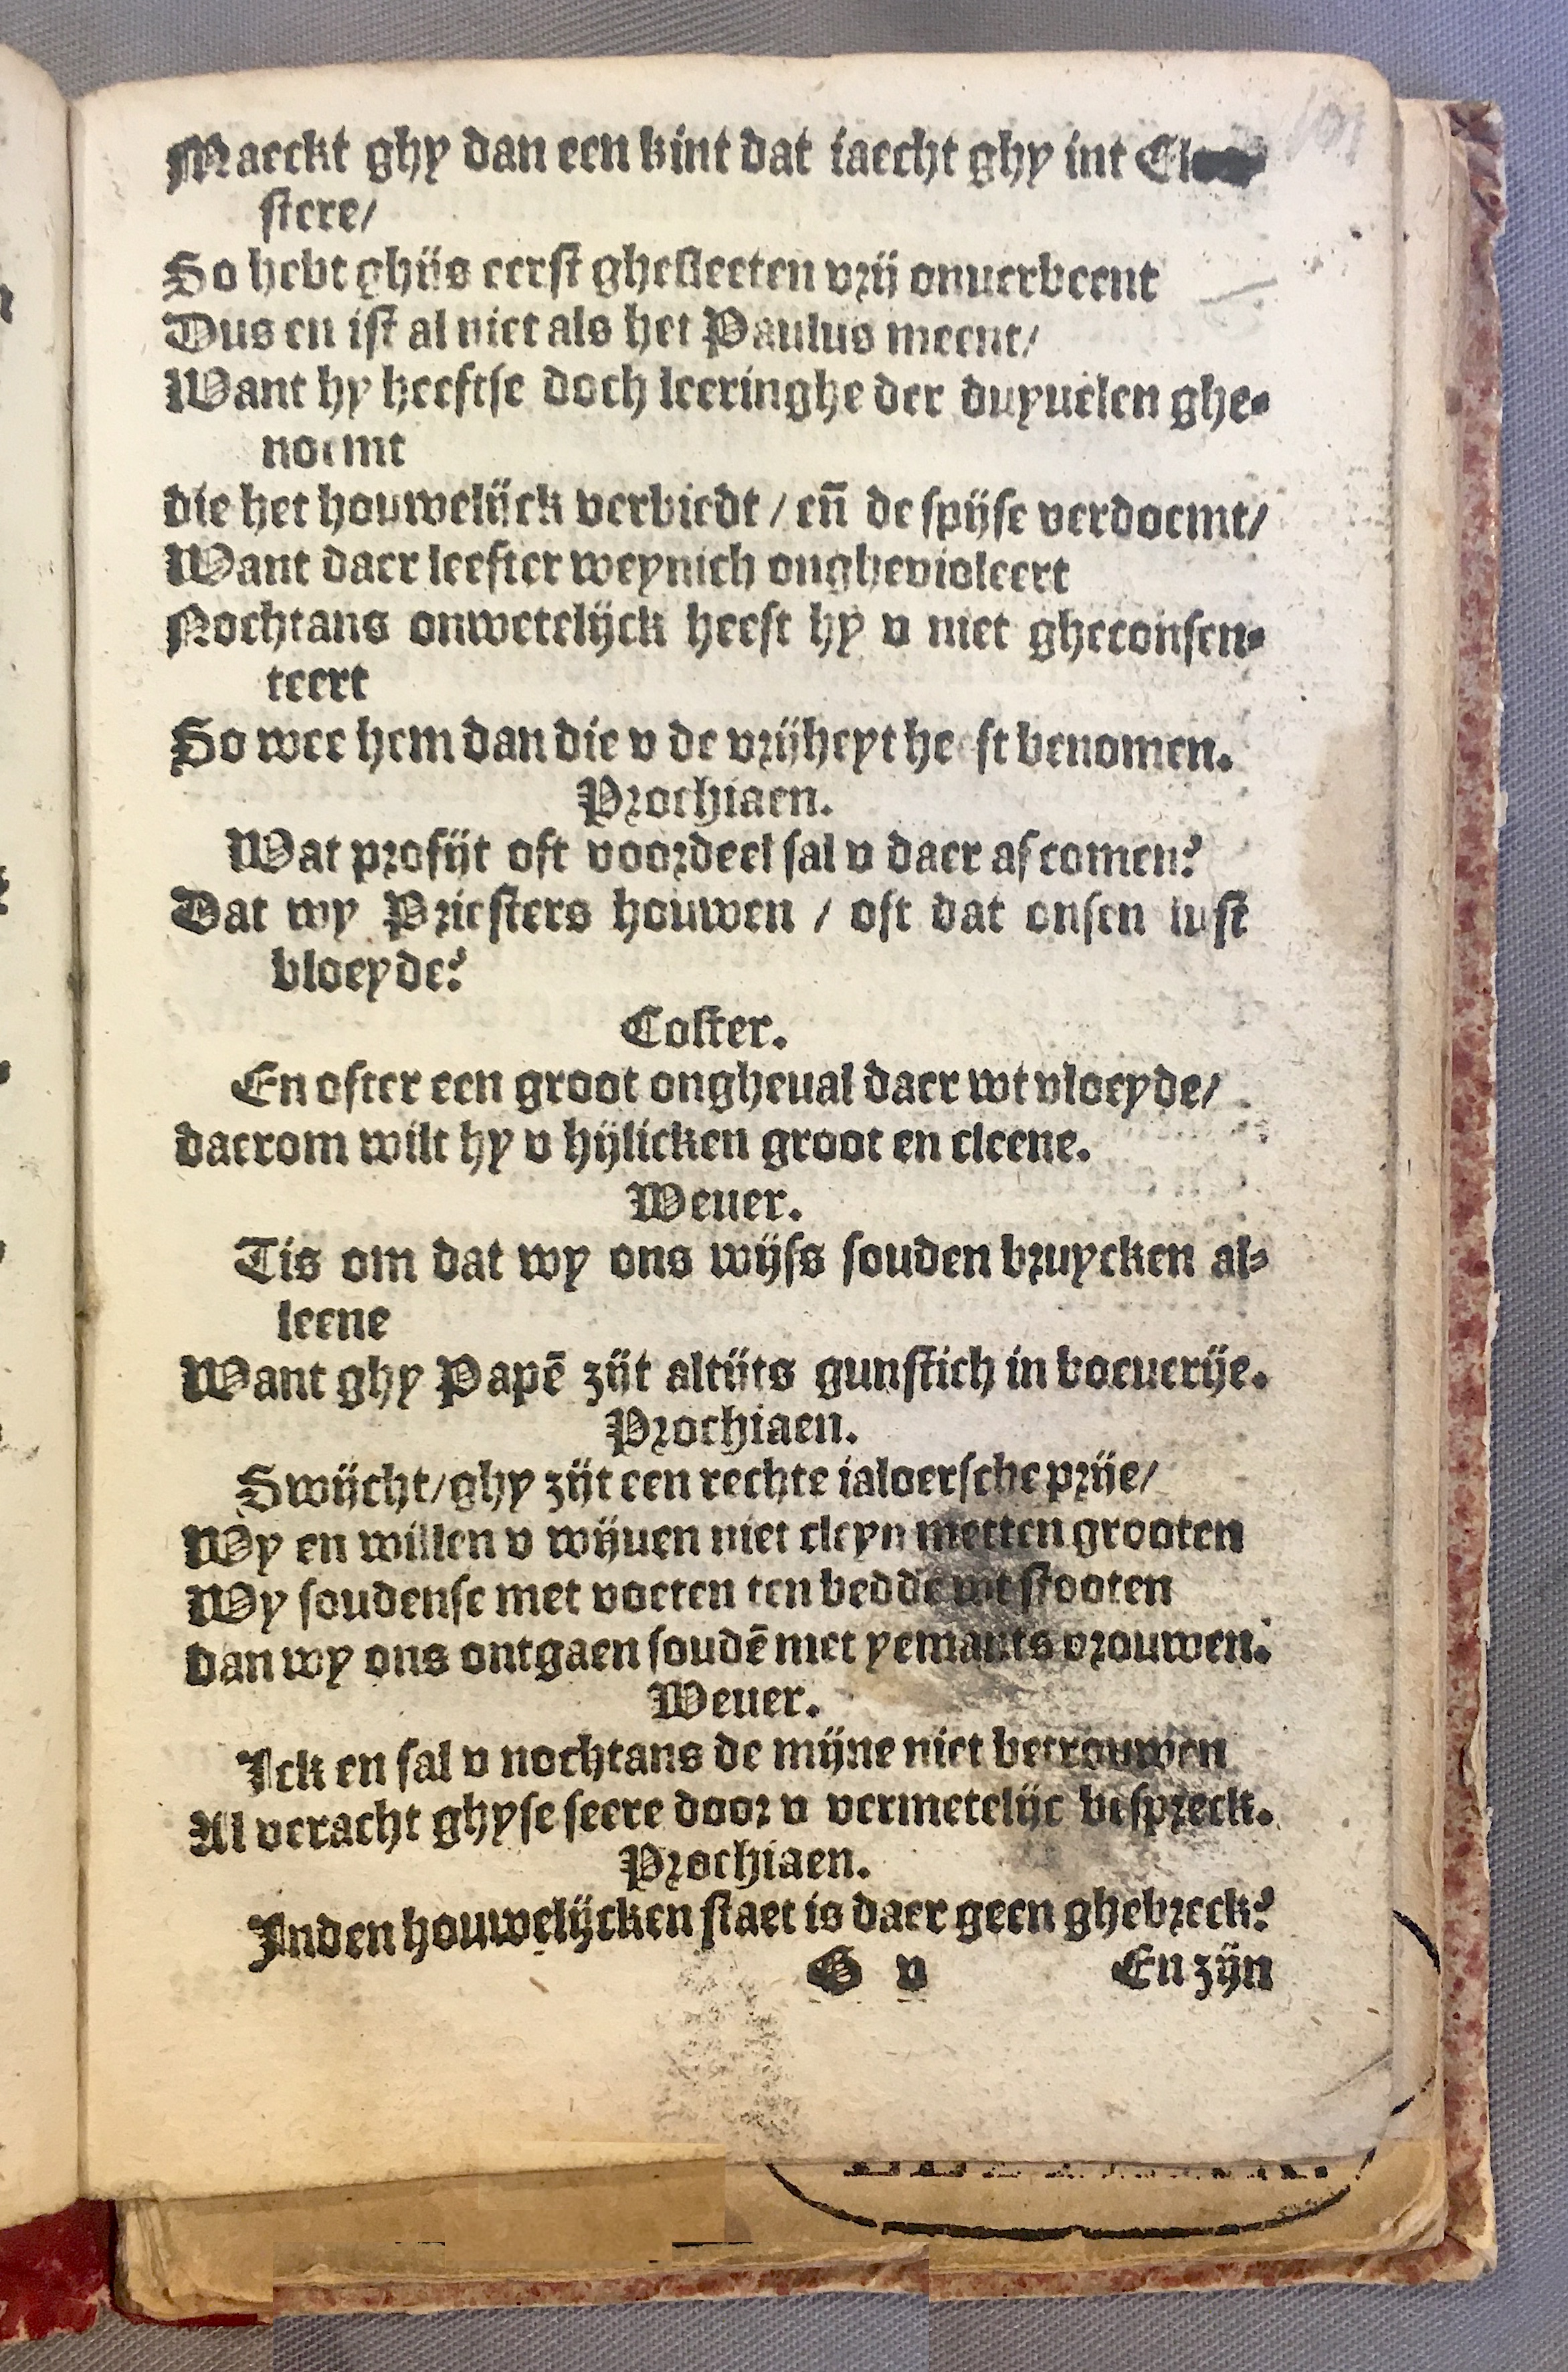 Maeckt ghy dan een kint dat iaecht ghy int Cloo
stere/
So hebt ghijs eerst ghesleeten vrij onuerbeent
Dus en ist al niet als het Paulus meent/
Want hy heeftse doch leeringhe der duyuelen ghe-
noemt
die het houwelijck verbiedt / eñ de spijse verdoemt/
Want daer leefter weynich onghevioleert
Nochtans onwetelijck heeft hy v niet gheconsen-
teert
So wee hem dan die v de vrijheyt heeft benomen.
Prochiaen.
Wat profijt oft voordeel sal v daer af comen?
Dat wy Priesters houwen / oft dat onsen lust
bloeyde?
Coster.
En ofter een groot ongheual daer wt vloeyde/
daerom wilt hy v hijlicken groot en cleene.
Weuer.
Tis om dat wy ons wijfs souden bruycken al-
leene
Want ghy Papē zijt altijts gunstich in boeuerije.
Prochiaen.
Swijcht/ghy zijt een rechte ialoersche prije/
Wy en willen v wijuen niet cleyn metten grooten
Wy soudense met voeten ten bedde wt stooten
dan wy ons ontgaen soudē met yemants vrouwen.
Weuer.
Ick en sal v nochtans de mijne niet betrouwen
Al veracht ghyse seere door v vermetelijc bespreck.
Prochiaen.
Inden houwelijcken staet is daer geen ghebreck?
G v En zijn